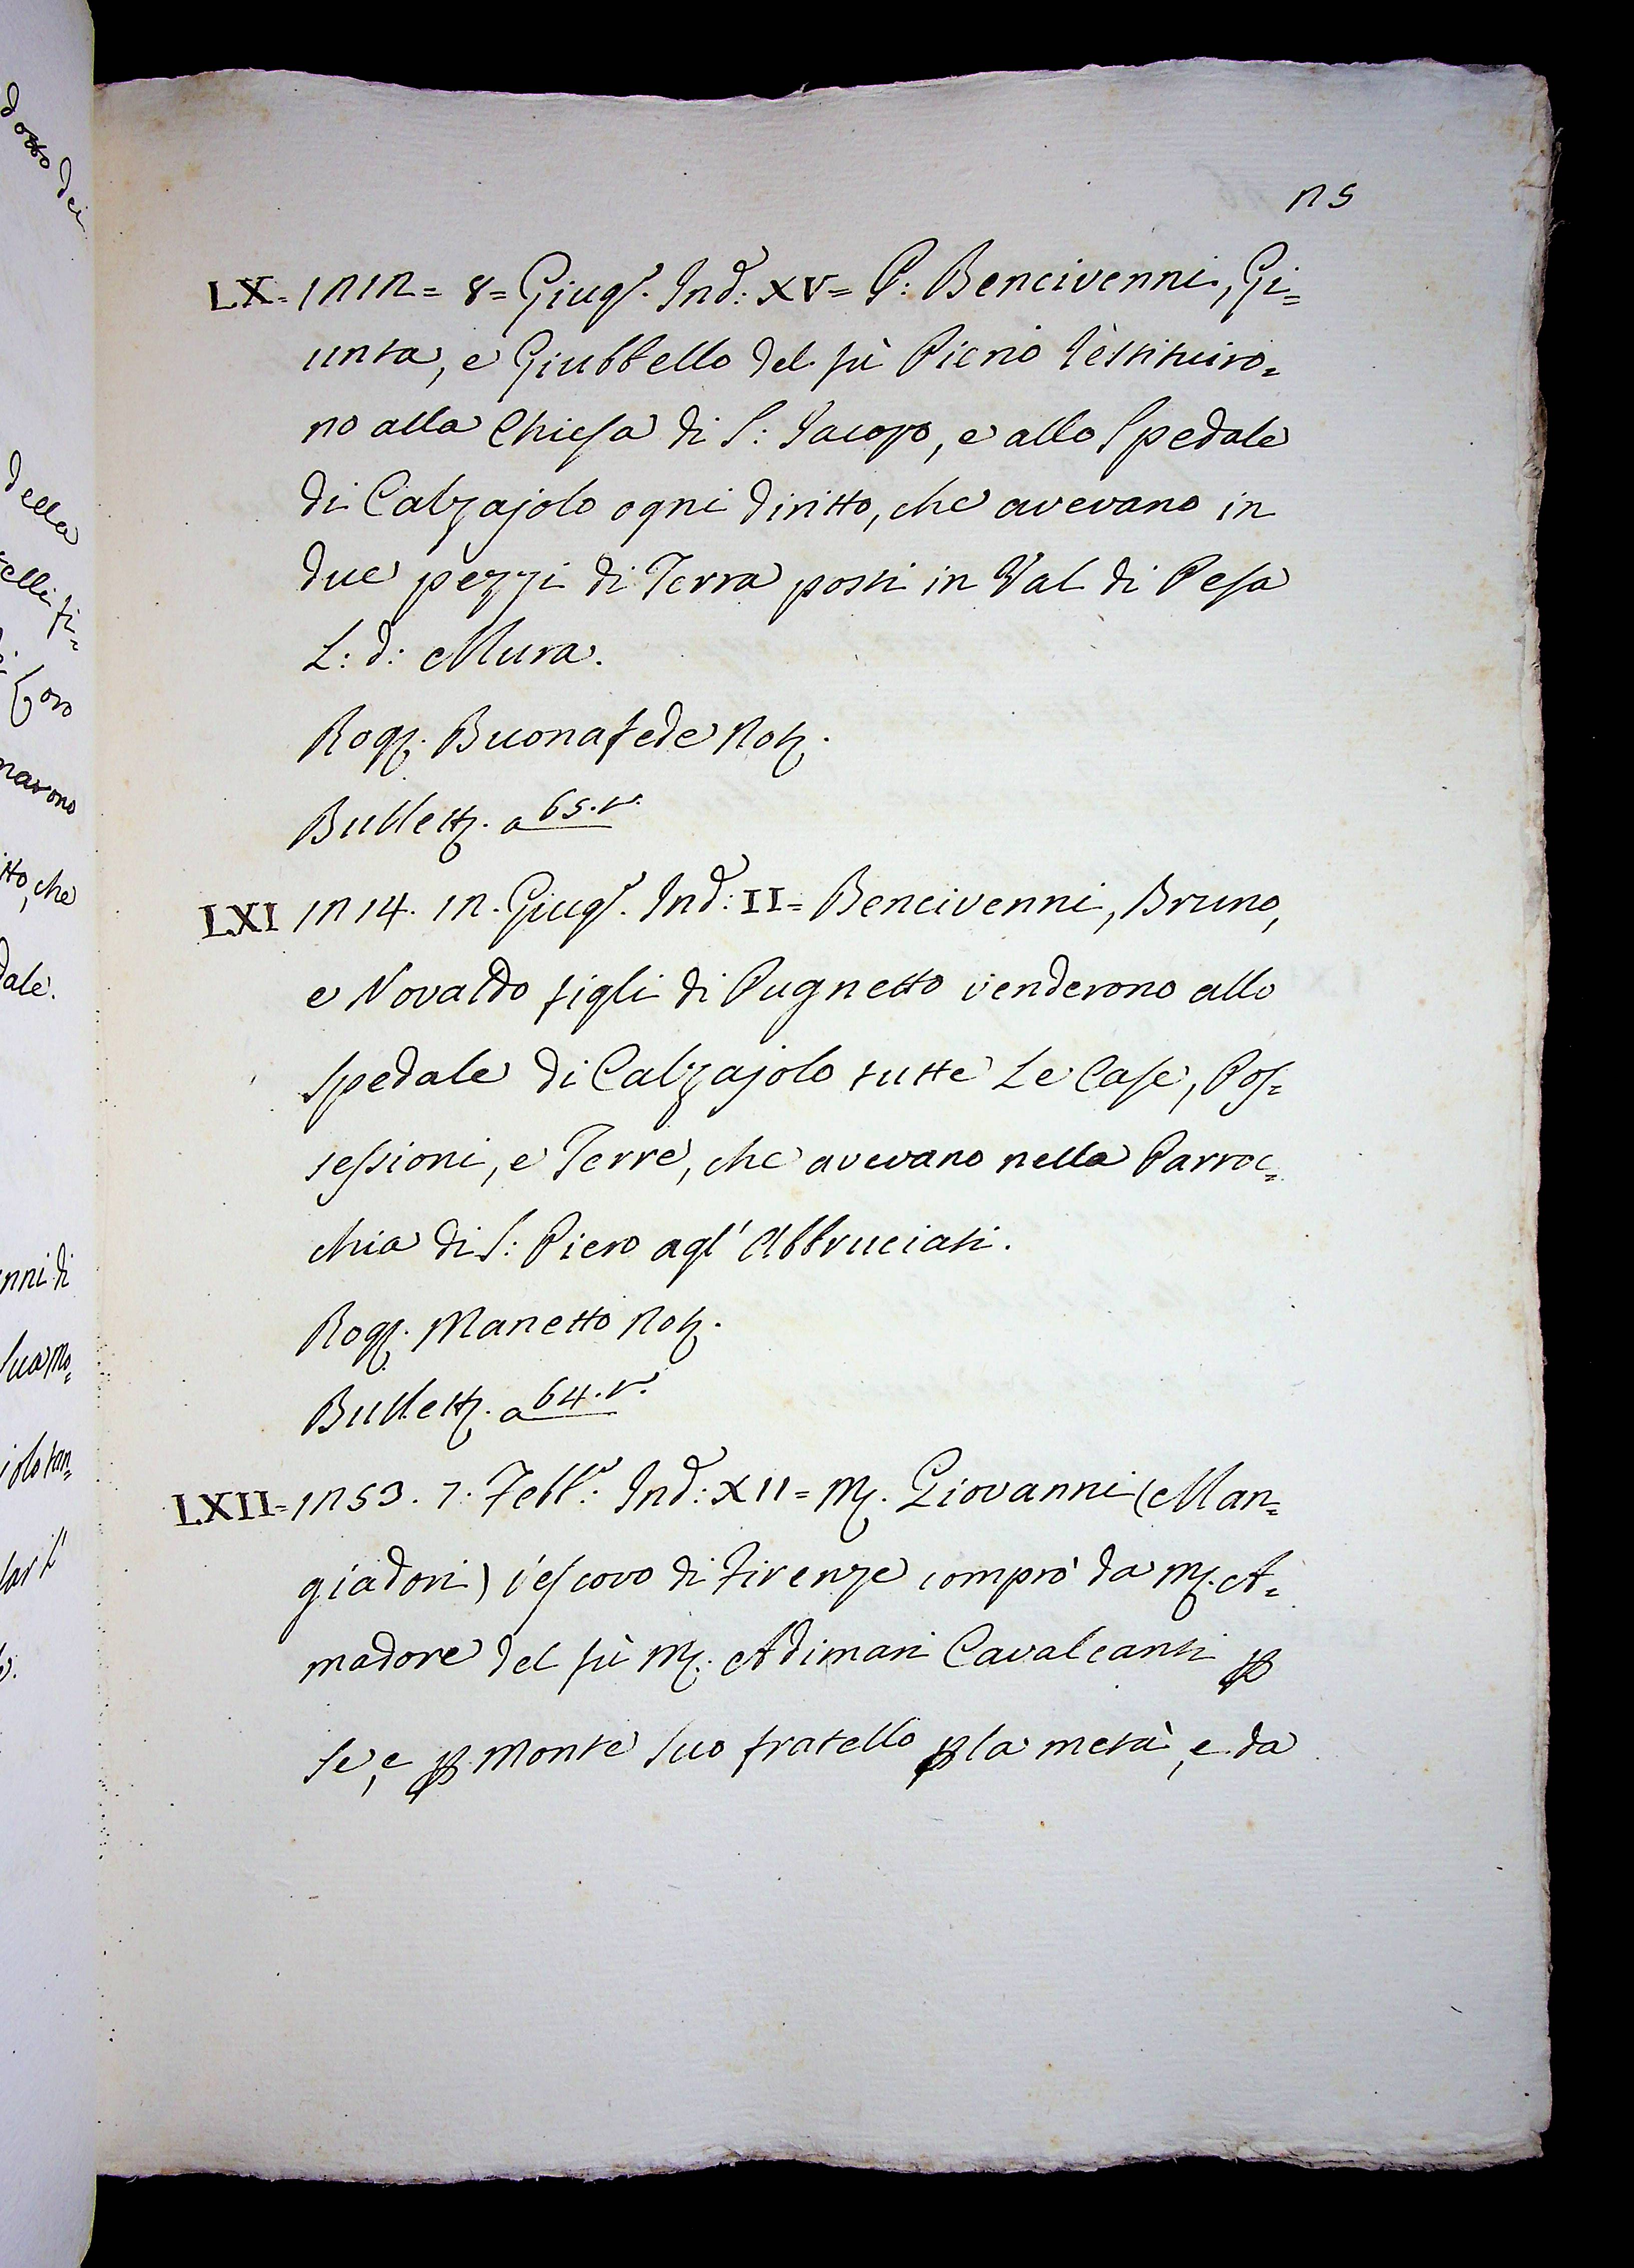 25
LX= 1212= 8= Giug.º Ind: XV= P: Bencivenni, Gi=
unta, e Giubbello del fù Piero restituiro=
no alla Chiesa di S: Jacopo, e allo Spedale
di Calzajolo ogni diritto, che avevano in
due pezzi di Terra posti in Val di Pesa
L: d: Mura.
Rog. Buonafede Not.
Bullett. a 65. r.
LXI 1214. 12. Giug.º Ind: II= Bencivenni, Bruno,
e Novaldo figli di Pugnetto venderono allo
Spedale di Calzajolo tutte Le Case, Pos=
sessioni, e Terre, che avevano nella Parroc=
chia di S: Piero agl' Abbruciati.
Rog. Manetto Not.
Bullett. a 64. r.
LXII= 1253. 7. Febb.º: Ind: XII= M. Giovanni (Man=
giadori) vescovo di Firenze comprò da M. A=
madore del fù M. Adimari Cavalcanti p
se, e p Monte suo fratello p la metà, e da
dotto dei
della
telli fi=
Loro
narono
tto, che
dale.
nni di
sua Mo=
jolo tan=
lar L'